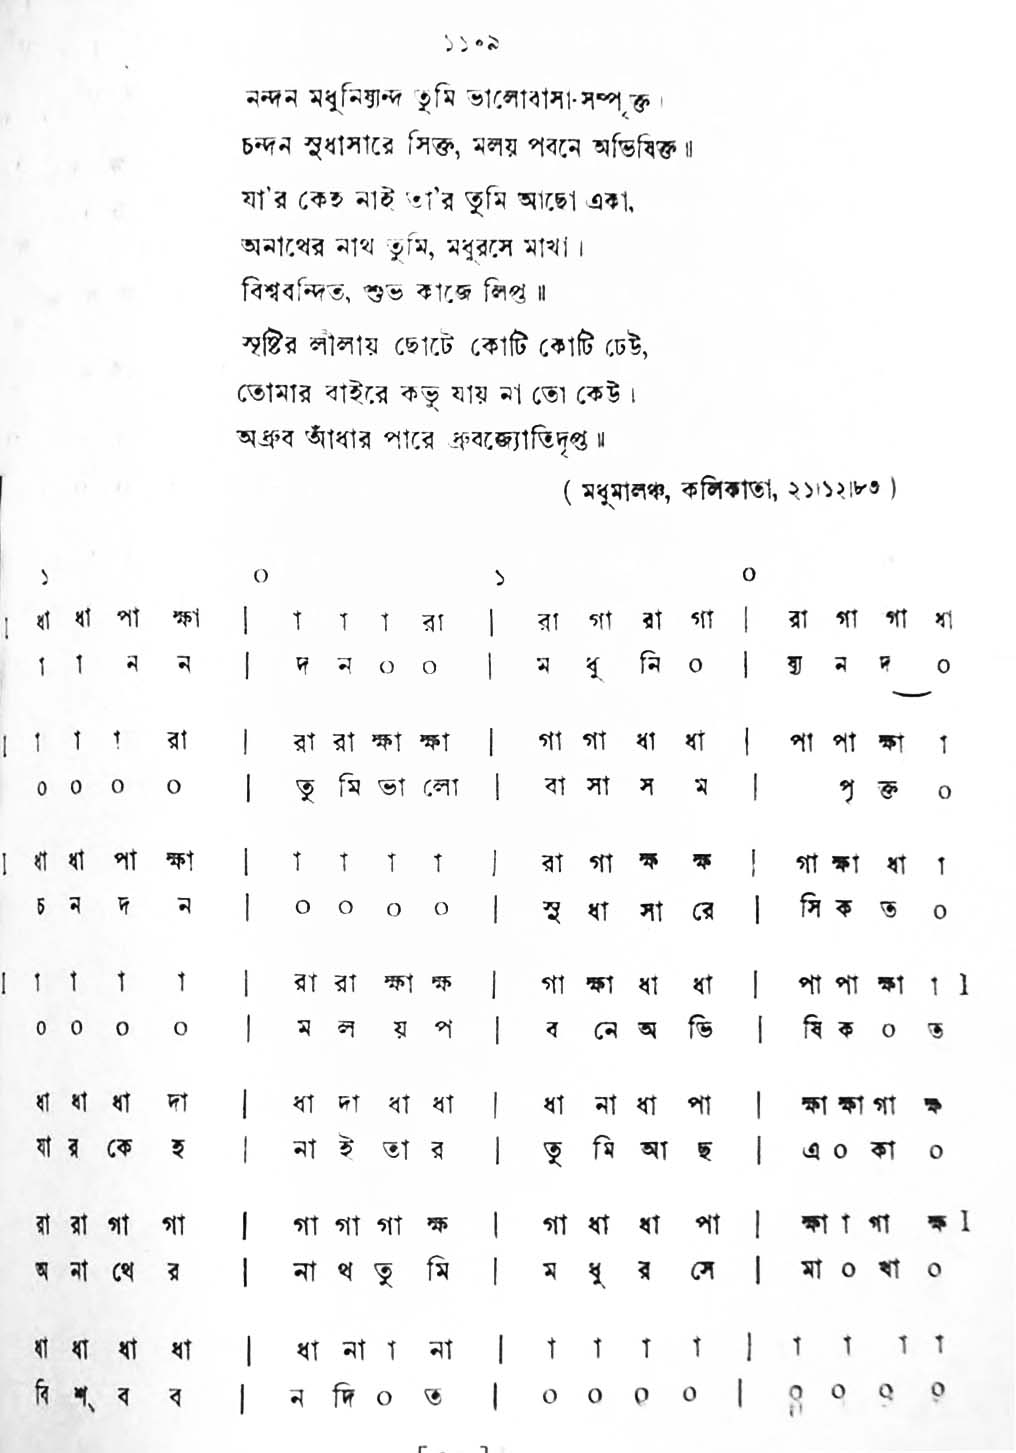 ১১০৯
নন্দন মধুনিষ্যন্দ তুমি ভালোবাসা-সম্পৃক্ত।
চন্দন সুধাসারে সিক্ত, মলয় পবনে অভিষিক্ত॥
যা'র কেহ নাই তা'র তুমি আছো একা,
অনাথের নাথ তুমি, মধুরসে মাখা।
বিশ্ববন্দিত, শুভ কাজে লিপ্ত॥
সৃষ্টির লীলায় ছোটে কোটি কোটি ঢেউ,
তোমার বাইরে কভু যায় না তো কেউ।
অধ্রুব আঁধার পারে ধ্রুবজ্যোতিদৃপ্ত॥
( মধুমালঞ্চ, কলিকাতা, ২১।১২।৮৩ )
১ ০ ১ ০
| ধা ধা পা ক্ষা | া া া রা | রা গা রা গা | রা গা গা ধা
া া ন ন | দ ন ০ ০ | ম ধু নি ০ | ষ্য ন দ ০
| া া া রা | রা রা ক্ষা ক্ষা | গা গা ধা ধা | পা পা ক্ষা া
০ ০ ০ ০ | তু মি ভা লো | বা সা স ম | পৃ ক্ত ০
| ধা ধা পা ক্ষা | া া া া | রা গা ক্ষ ক্ষ | গা ক্ষা ধা া
চ ন দ ন | ০ ০ ০ ০ | সু ধা সা রে | সি ক ত ০
| া া া া | রা রা ক্ষা ক্ষ | গা ক্ষা ধা ধা | পা পা ক্ষা া I
০ ০ ০ ০ | ম ল য় প | ব নে অ ভি | ষি ক ০ ত
ধা ধা ধা দা | ধা দা ধা ধা | ধা না ধা পা | ক্ষা ক্ষা গা ক্ষ
যা র কে হ | না ই তা র | তু মি আ ছ | এ ০ কা ০
রা রা গা গা | গা গা গা ক্ষ | গা ধা ধা পা | ক্ষা া গা ক্ষ I
অ না থে র | না থ তু মি | ম ধু র সে | মা ০ খা ০
ধা ধা ধা ধা | ধা না া না | া া া া | া া া া
বি শ্ ব ব | ন দি ০ ত | ০ ০ ০ ০ | ০ ০ ০ ০